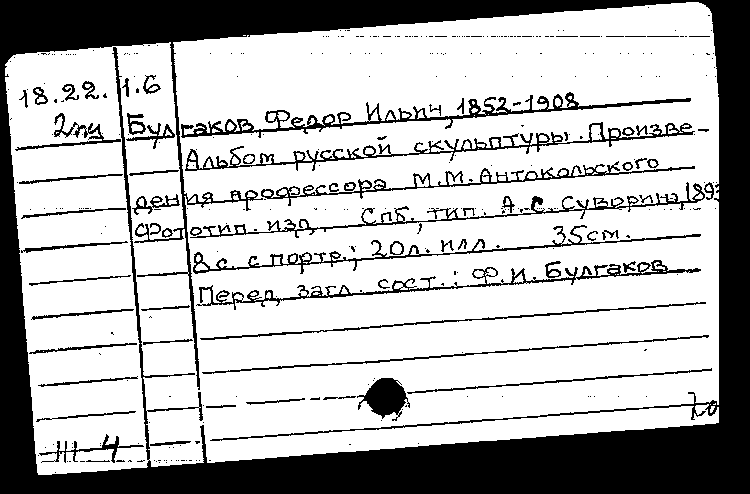 18.22.1.6
Булгаков, Федор Ильич, 1852-1908
Альбом русской скульптуры. Произве-
дения профессора М.М. Антокольского
Фототип. изд. Спб., тип. А.С. Суворина, 1893
8 с. с портр.; 20 л. илл. 35 см.
Перед загл. сост.: Ф.И. Булгаков
III-4